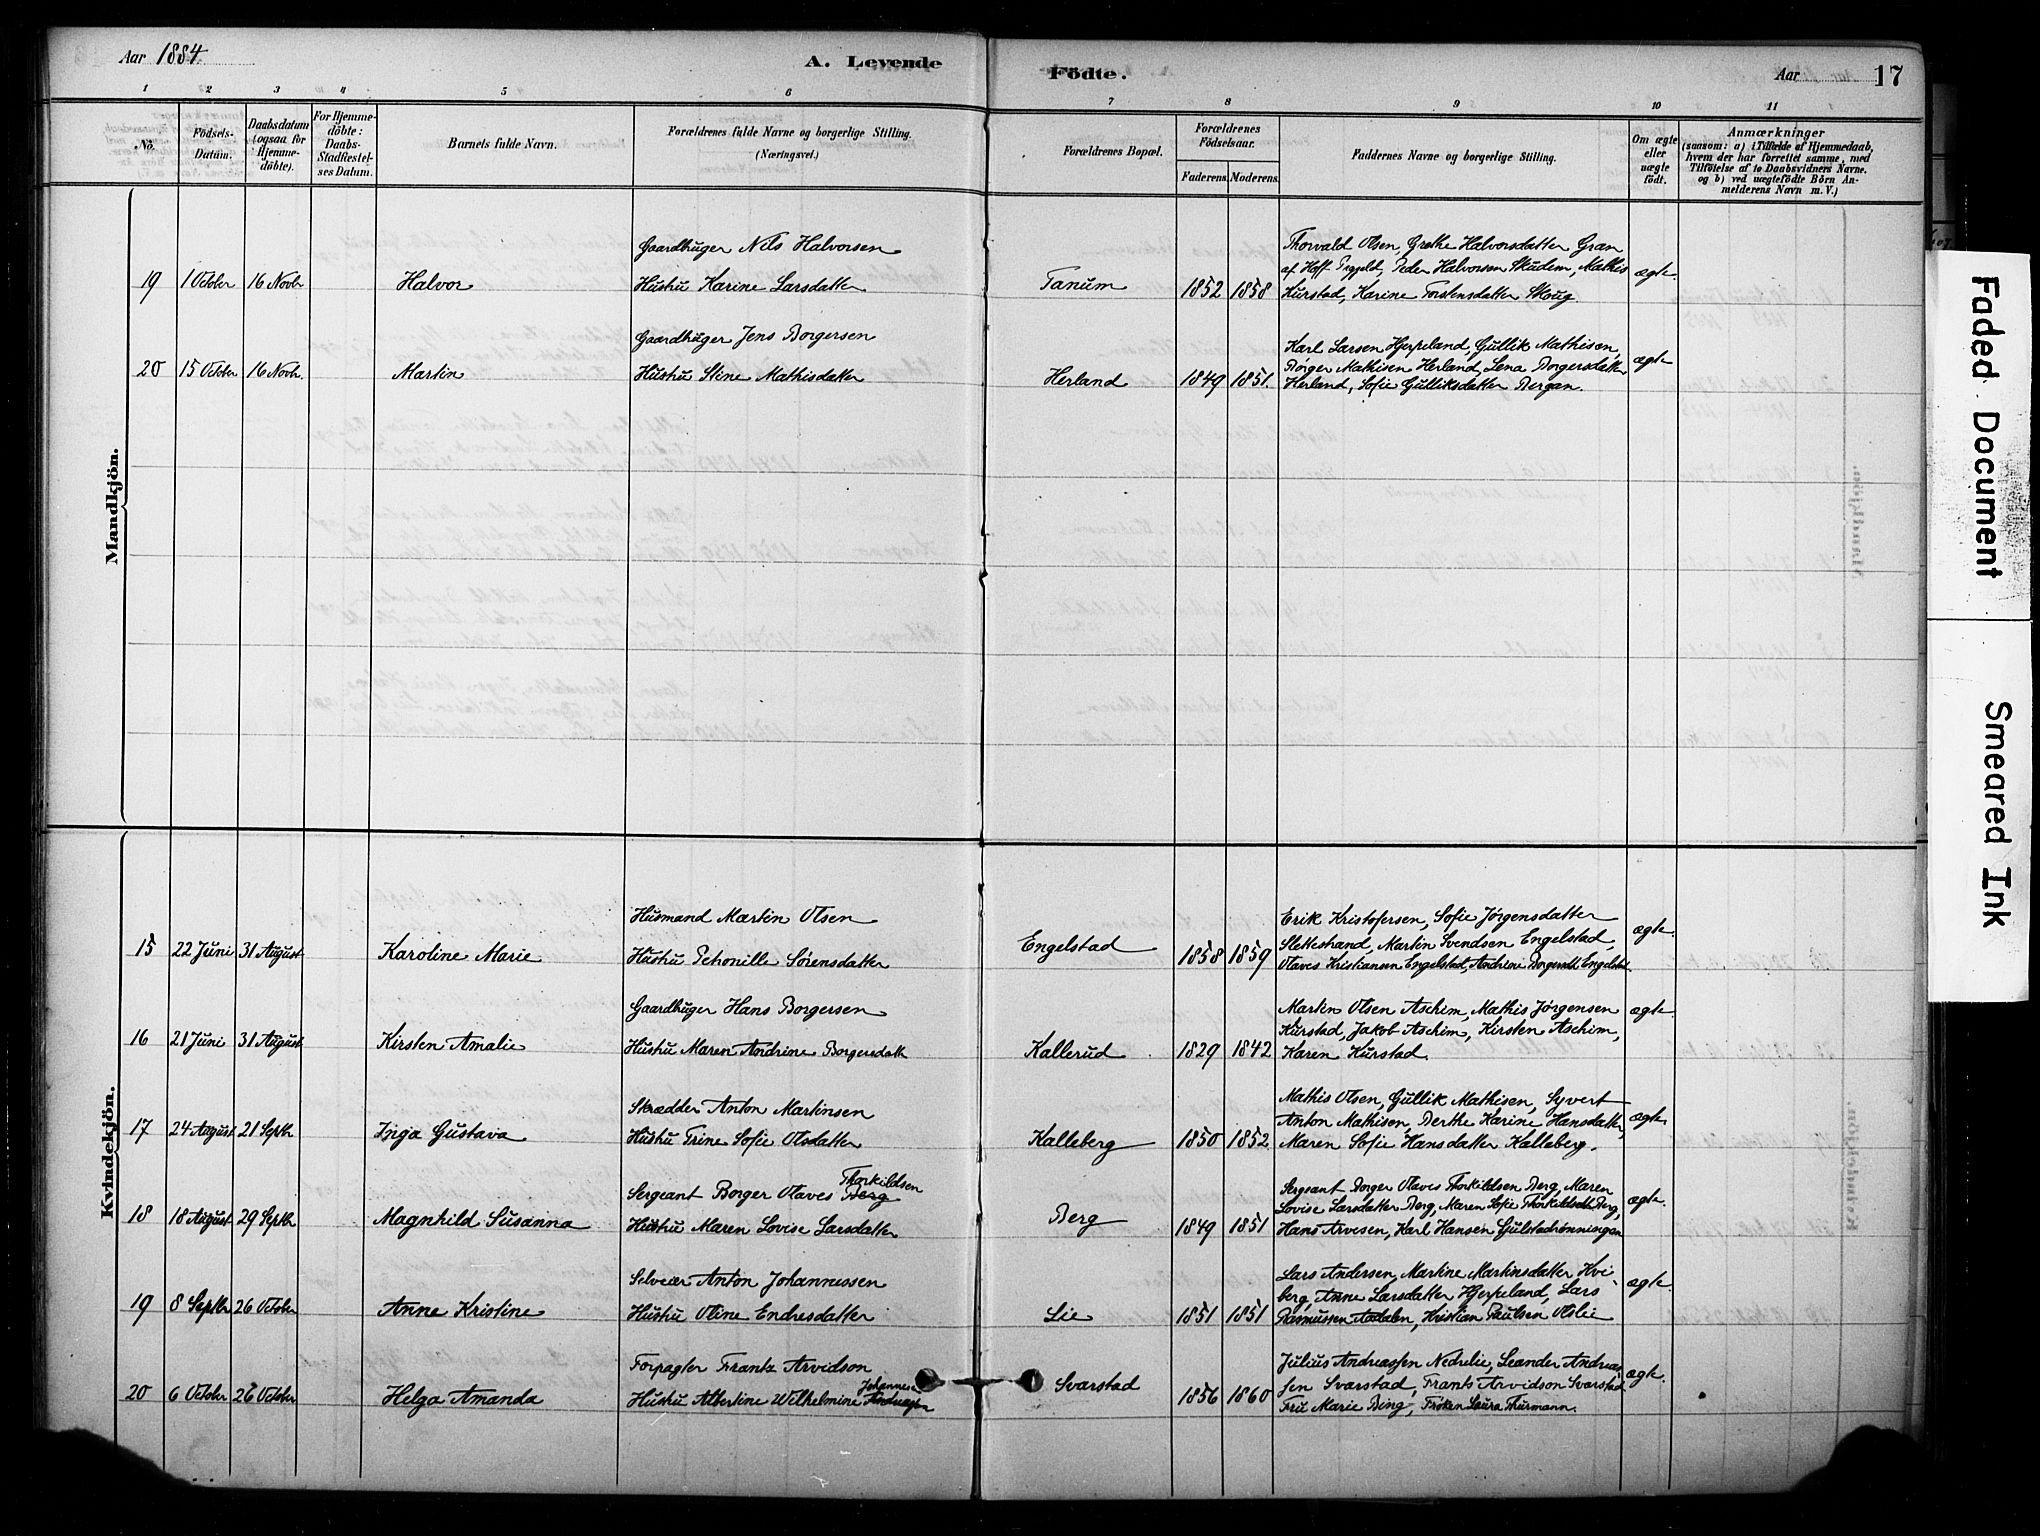 Aar 1884.
A. Levende
Födte.
Aar
17
1 2 3 4 5 6 7 8 9 10 11
No.
Födsels-
Datum.
Daabsdatum
(ogsaa for
Hjemme-
döbte).
For Hjemme-
döbte:
Daabs-
Stadfæstel-
ses Datum.
Barnets fulde Navn.
Forældrenes fulde Navne og borgerlige Stilling.
(Næringsvei.)
Forældrenes Bopæl.
Forældrenes
Födselsaar.
Faderens. Moderens.
Faddernes Navne og borgerlige Stilling.
Om ægte
eller
uægte
födt.
Anmærkninger
(saasom: a) i Tilfælde af Hjemmedaab,
hvem der har forrettet samme, med
Tilföielse af to Daabsvidners Navne.
og b) ved uægtefödte Börn An-
melderens Navn m. V.)
Mandkjön.
Gaardbruger Nils Halvorsen
19 1 October 16 Novbr Halvor Hustru Karine Larsdatter
Tanum 1852 1858
Thorvald Olsen, Grethe Halvorsdatter Gran
af Hoff Prgjeld, Peder Halvorsen Skudem, Mathis
Kurstad, Karine Torstensdatter Skoug.
ægte.
Gaardbruger Jens Borgersen
20 15 October 16 Novbr. Martin Hustru Stine Mathisdatter
Herland 1849 1851.
Karl Larsen Hjerpeland, Gullik Mathisen,
Børger Mathisen Herland, Lena Borgersdatter
Herland, Sofie Gulliksdatter Bergan.
ægte
Kvindekjön.
Husmand Martin Olsen
15 22 Juni 31 August Karoline Marie Hustru Pethonille Sørensdatter
Engelstad 1858 1859
Erik Kristofersen, Sofie Jörgensdatter
Slettestrand, Martin Svendsen Engelstad,
Olaves Kristiansen Engelstad, Andrine Borgersdt Engelstad.
ægte.
Gaardbruger Hans Borgersen
16 21 Juni 31 August Kirsten Amalie Hustru Maren Andrine Borgersdatt
Kallerud 1829 1842
Martin Olsen Aschim, Mathis Jörgensen
Kurstad, Jakob Aschim, Kirsten Aschim,
Karen Kurstad.
ægte.
Skrædder Anton Martinsen
17 24 August 21 Septbr Inga Gustava Hustru Trine Sofie Olsdatter
Kalleberg 1850 1852.
Mathis Olsen, Gullik Mathisen, Syvert
Anton Mathisen, Berthe Karine Hansdatter,
Maren Sofie Hansdatter Kalleberg.
ægte.
Thorkildsen
Sergeant Borger Olaves Berg
18 18 August 29 Septbr Magnhild Susanna Hustru Maren Lovise Larsdatter
Berg 1849 1851
Sergeant Borger Olaves Thorkildsen Berg, Maren
Lovise Larsdatter Berg, Maren Sofie Thorkildsdatt Berg,
Hans Arvesen, Karl Hansen Gulstadrønningen
ægte.
Selveier Anton Johannessen
19 8 Septbr 26 October Anne Kristine Hustru Oline Endresdatter
Lie 1851 1851
Lars Andersen, Martine Martinsdatter Kvi-
berg, Anne Larsdatter Hjerpeland, Lars
Rasmussen Aadalen, Kristian Paulsen Olslie
ægte.
Forpagter Frantz Arvidson
Johannese
20 6 October 26 October Helga Amanda Hustru Albertine Wilhelmine Andreasen
Svarstad 1856 1860
Julius Andreassen Nedrelie, Leander Andreas-
sen Svarstad, Frants Arvidson Svarstad
Fru Marie Bing, Frøken Laura Thurmann.
ægte.
Faded Document
Smeared Ink